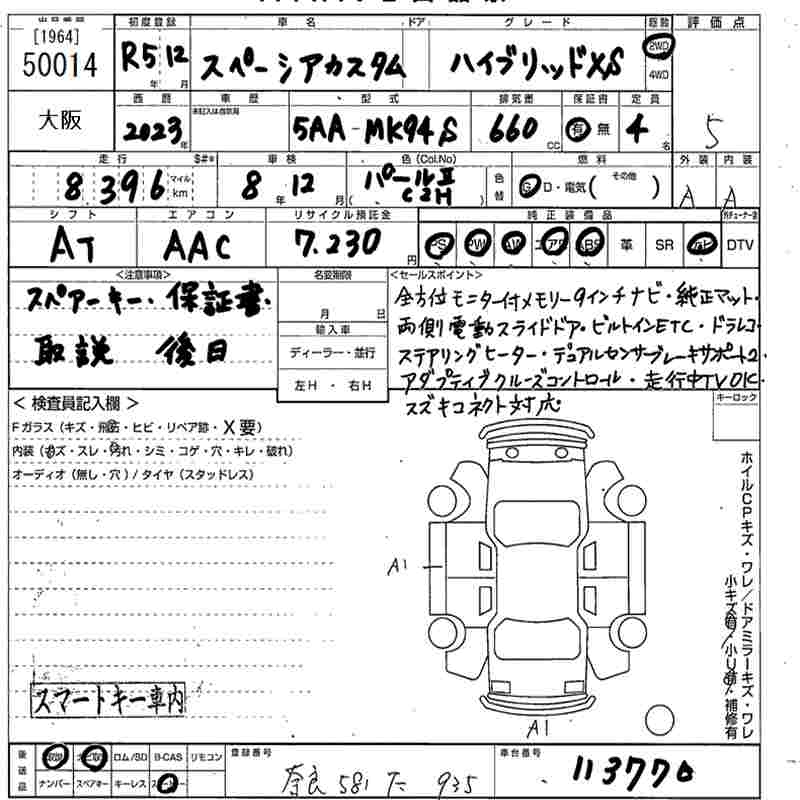 [1964]
50014
大阪
初度登録
R5 12
年 月
車名
スペーシアカスタム
ドア
グレード
ハイブリッドXS
駆動
2WD
4WD
評価点
5
西暦
2023
年
車歴
未記入は自家用
型式
5AA-MK94S
排気量
660
CC
保証書
有 無
定員
4
名
走行
8,396
マイル
km
$#*
車検
8 年 12 月
色(Col.No)
パールⅡ
( C2H )
色替
燃料
G D・電気( その他 )
外装
A
内装
A
シフト
AT
エアコン
AAC
リサイクル預託金
7.230
円
純正装備品
PS PW AW エアB ABS 革 SR ナビ DTV
<注意事項>
スペアーキー・保証書・
取説 後日
名変期限
月 日
輸入車
ディーラー・並行
左H ・ 右H
<セールスポイント>
全方位モニター付メモリー9インチナビ・純正マット・
両側電動スライドドア・ビルトインETC・ドラレコ・
ステアリングヒーター・デュアルセンサーブレーキサポート2
アダプティブクルーズコントロール・走行中TVOK・
スズキコネクト対応
キーロック
<検査員記入欄>
Fガラス(キズ・飛石・ヒビ・リペア跡・X要)
内装(キズ・スレ・汚れ・シミ・コゲ・穴・キレ・破れ)
オーディオ(無し・穴)/タイヤ(スタッドレス)
A1
A1
ホイルCPキズ・ワレ/ドアミラーキズ・ワレ
小キズ有/小U有/補修有
スマートキー車内
後送品
取説 ナビ取 ロム/SD B-CAS リモコン
ナンバー スペアキー キーレス
登録番号
奈良 581 た 935
車台番号
113770